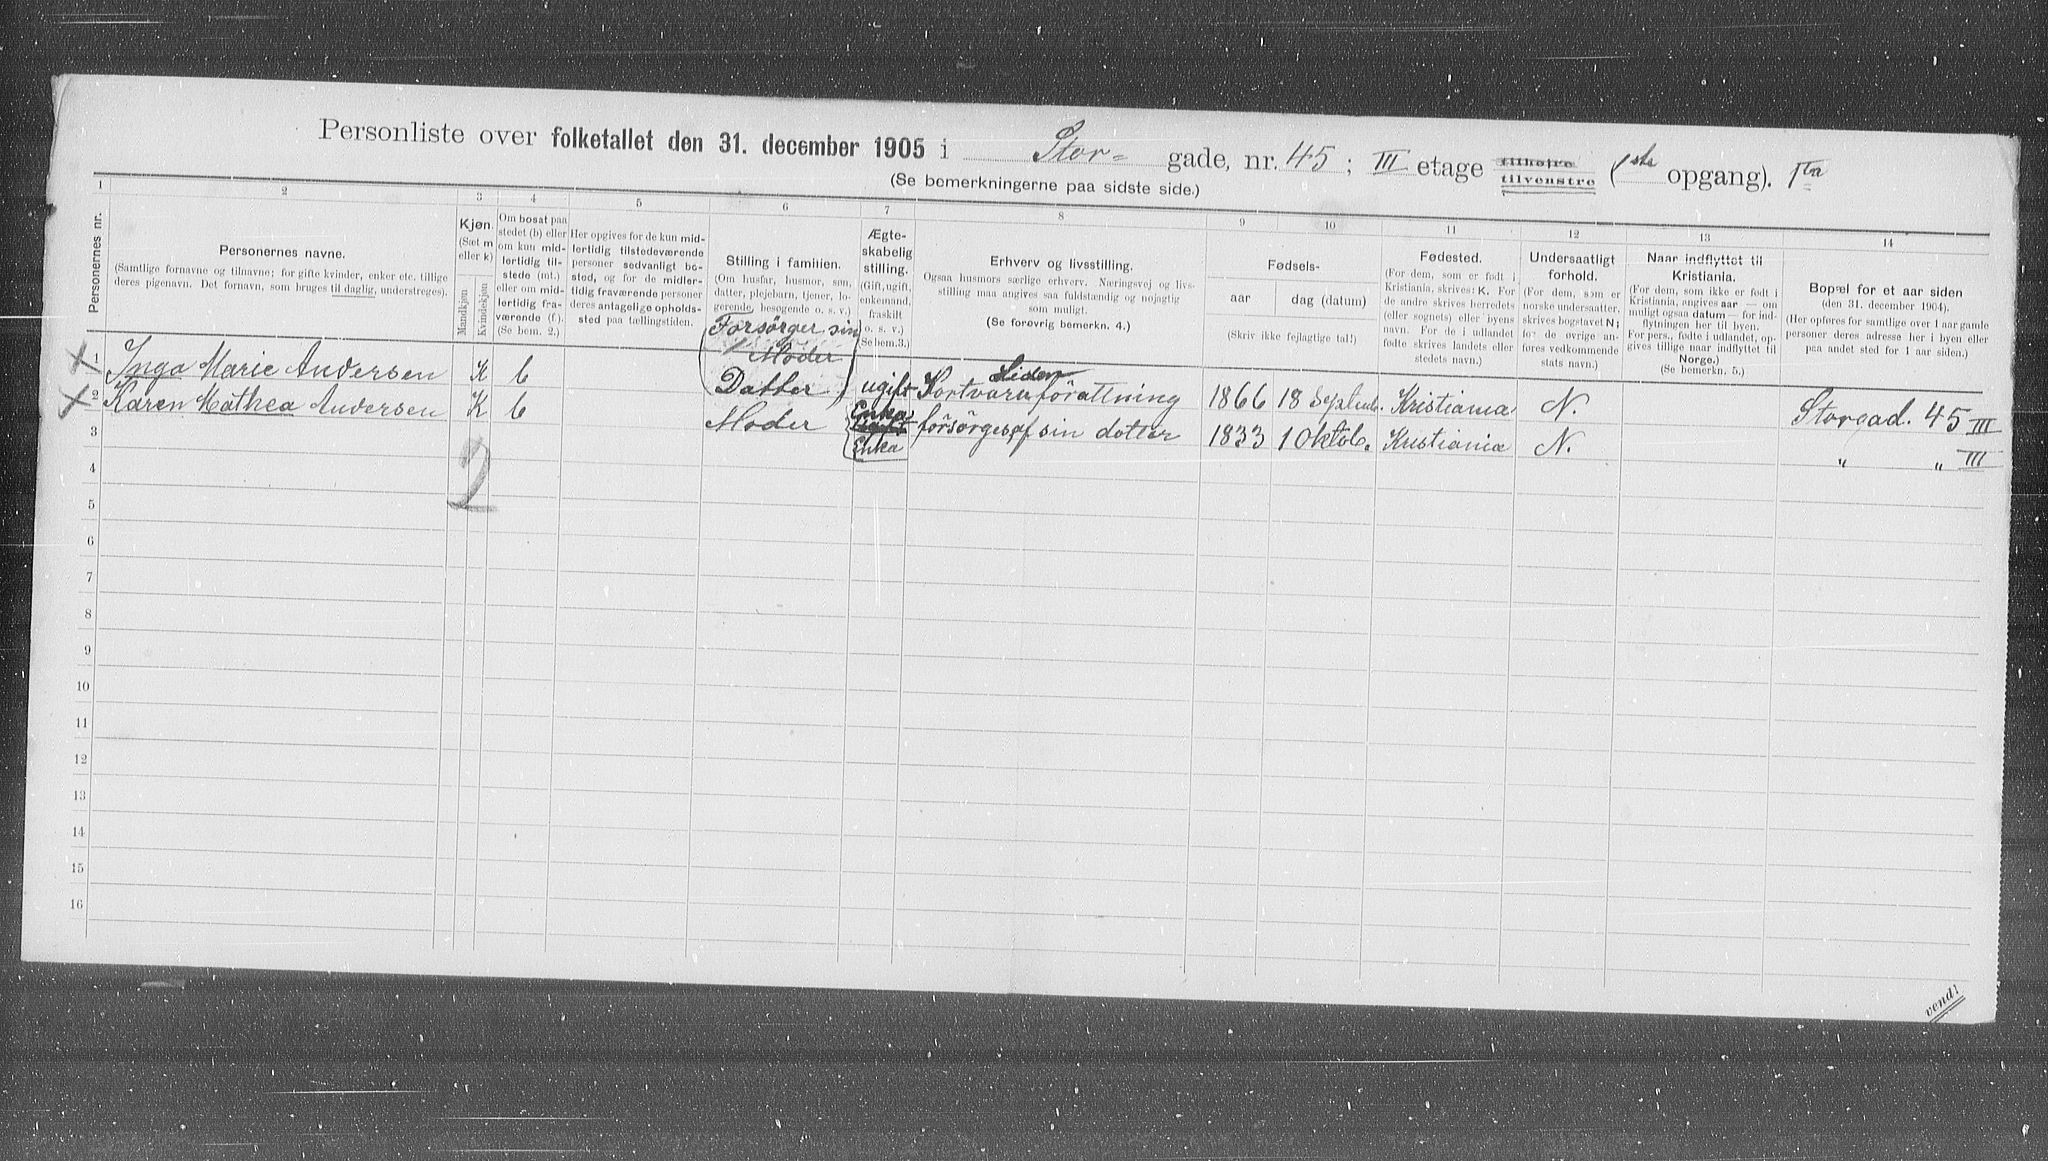 Personliste over folketallet den 31. december 1905 i Stor- gade, nr. 45 ; III etage tilhøjre tilvenstre (1ste opgang).
(Se bemerkningerne paa sidste side.)
1 2 3 4 5 6 7 8 9 10 11 12 13 14
Personernes nr.
Personernes navne.
(Samtlige fornavne og tilnavne; for gifte kvinder, enker etc. tillige
deres pigenavn. Det fornavn, som bruges til daglig, understreges).
Kjøn.
(Sæt m
eller k)
Mandkjøn
Kvindekjøn
Om bosat paa
stedet (b) eller
om kun mid-
lertidig til-
stede (mt.)
eller om mid-
lertidig fra-
værende (f.)
(Se bem. 2.)
Her opgives for de kun mid-
lertidig tilstedeværende
personer sedvanligt bo-
sted, og for de midler-
tidig fraværende personer
deres antagelige opholds-
sted paa tællingstiden.
Stilling i familien.
(Om husfar, husmor, søn,
datter, plejebarn, tjener, lo-
gerende, besøgende o. s. v.)
Ægte-
skabelig
stilling.
(Gift, ugift,
enkemand,
fraskilt
o. s. v.)
(Se bem.3.)
Erhverv og livsstilling.
Ogsaa husmors særlige erhverv. Næringsvej og livs-
stilling maa angives saa fuldstændig og nøjagtig
som muligt.
(Se forøvrig bemerkn. 4.)
Fødsels-
aar
dag (datum)
(Skriv ikke fejlagtige tal!)
Fødested.
(For dem, som er født i
Kristiania, skrives: K. For
de andre skrives herredets
(eller sognets) eller byens
navn. For de i udlandet
fødte skrives landets eller
stedets navn.)
Undersaatligt
forhold.
(For dem, som er
norske undersaatter,
skrives bogstavet N;
for de øvrige an-
føres vedkommende
stats navn.)
Naar indflyttet til
Kristiania.
(For dem, som ikke er født i
Kristiania, angives aar — om
muligt ogsaa datum — for ind-
flytningen her til byen.
For pers., fødte i udlandet, op-
gives tillige naar indflyttet til
Norge.)
(Se bemerkn. 5.)
Bopæl for et aar siden
(den 31. december 1904).
(Her opføres for samtlige over 1 aar gamle
personer deres adresse her i byen eller
paa andet sted for 1 aar siden.)
Forsørger sin
Moder
1 Inga Marie Andersen K b Datter ugift Kortvareforættning 1866 18 Septemb. Kristiania N. Storgad. 45 III
2 Karen Mathea Andersen K b Moder Enke försörges af sin dotter 1833 1 Oktob. Kristiania N. " " III
Enka
3
2
4
5
6
7
8
9
10
11
12
13
14
15
16
vend!